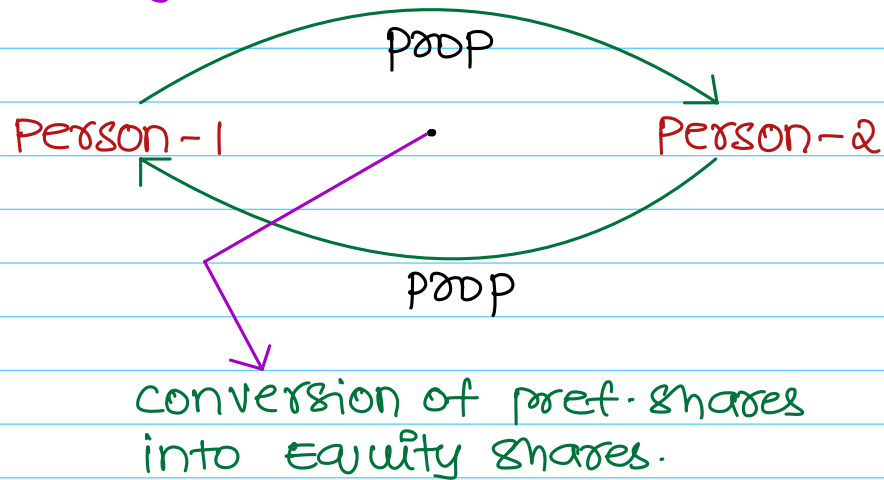 Prop
Person-1 Person-2
Prop
conversion of pref. shares
into Equity shares.